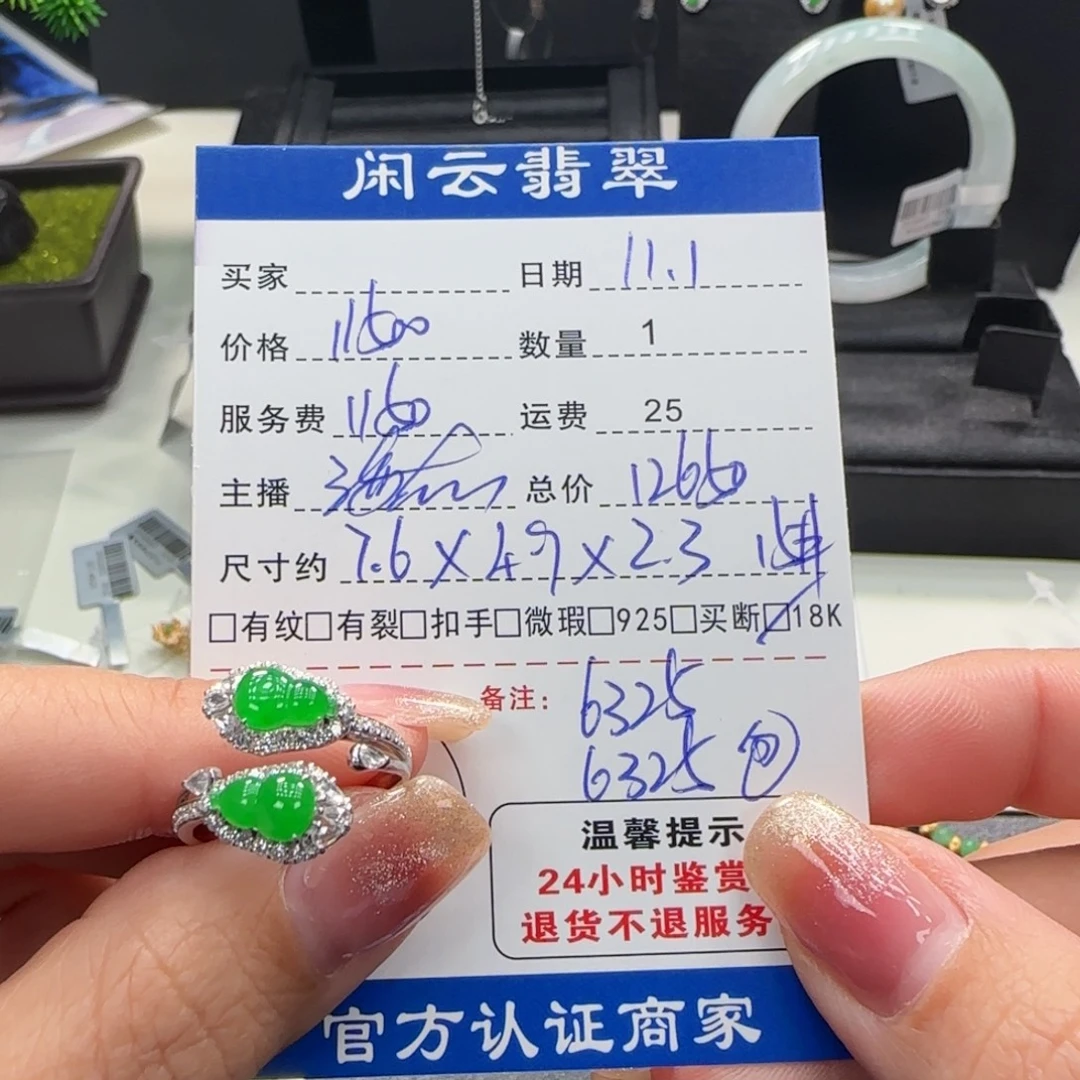 闲云翡翠
买家 日期 11.1
价格 11500 数量 1
服务费 1150 运费 25
主播 总价 12650
尺寸约 7.6×4.9×2.3
□有纹□有裂□扣手□微瑕□925□买断□18K
备注: 6325
6325
温馨提示
24小时鉴赏
退货不退服务
官方认证商家